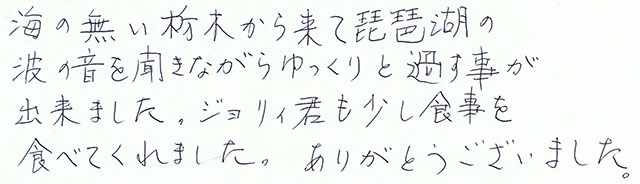 海の無い栃木から来て琵琶湖の
波の音を聞きながらゆっくりと過す事が
出来ました。ジョリィ君も少し食事を
食べてくれました。ありがとうございました。